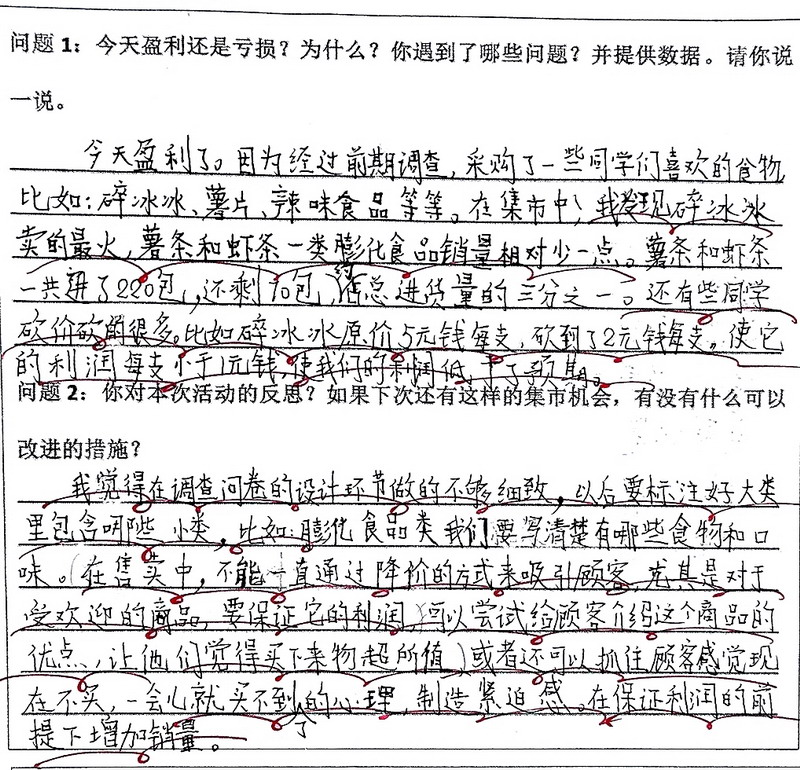 问题 1：今天盈利还是亏损？为什么？你遇到了哪些问题？并提供数据。请你说
一说。
今天盈利了。因为经过前期调查，采购了一些同学们喜欢的食物
比如：碎冰冰、薯片、辣味食品等等。在集市中，我发现碎冰冰
卖的最火，薯条和虾条一类膨化食品销量相对少一点。薯条和虾条
一共进了220包，还剩70包，约占总进货量的三分之一。还有些同学
砍价砍的很多。比如碎冰冰原价5元钱每支，砍到了2元钱每支，使它
的利润每支小于1元钱，使我们的利润低于了预期。
问题 2：你对本次活动的反思？如果下次还有这样的集市机会，有没有什么可以
改进的措施？
我觉得在调查问卷的设计环节做的不够细致，以后要标注好大类
里包含哪些小类，比如：膨化食品类我们要写清楚有哪些食物和口
味。在售卖中，不能一直通过降价的方式来吸引顾客，尤其是对于
受欢迎的商品，要保证它的利润，可以尝试给顾客介绍这个商品的
优点，让他们觉得买下来物超所值，或者还可以抓住顾客感觉现
在不买，一会儿就买不到了的心理，制造紧迫感。在保证利润的前
提下增加销量。